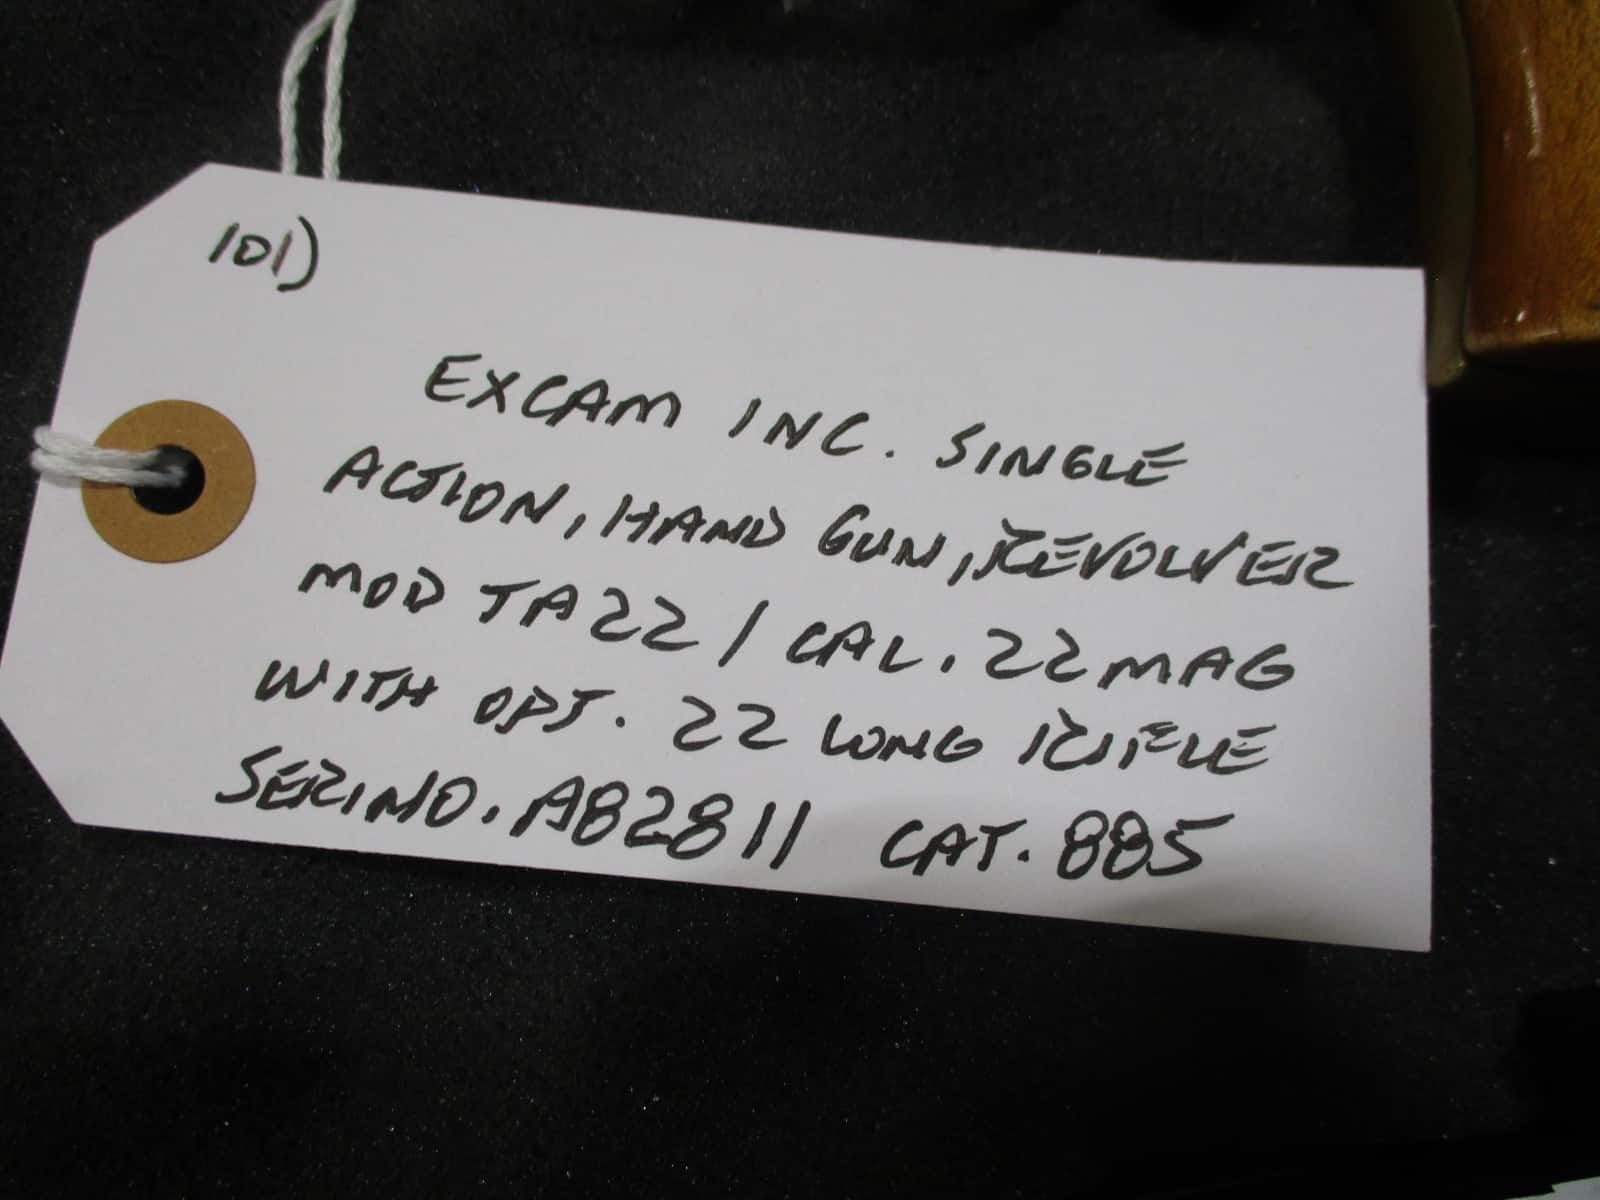 101)
EXCAM INC. SINGLE
ACTION, HAND GUN, REVOLVER
MOD TA22 / CAL. 22 MAG
WITH OPT. 22 LONG RIFLE
SERINO. A82811 CAT. 885